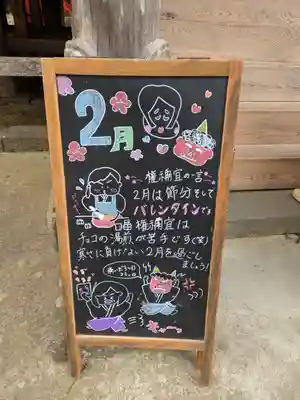 2月
権禰宜の一言
2月は節分そして
バレンタインです
権禰宜は
チョコの湯煎が苦手です(笑)
寒さに負けない2月を過ごし
ましょう!